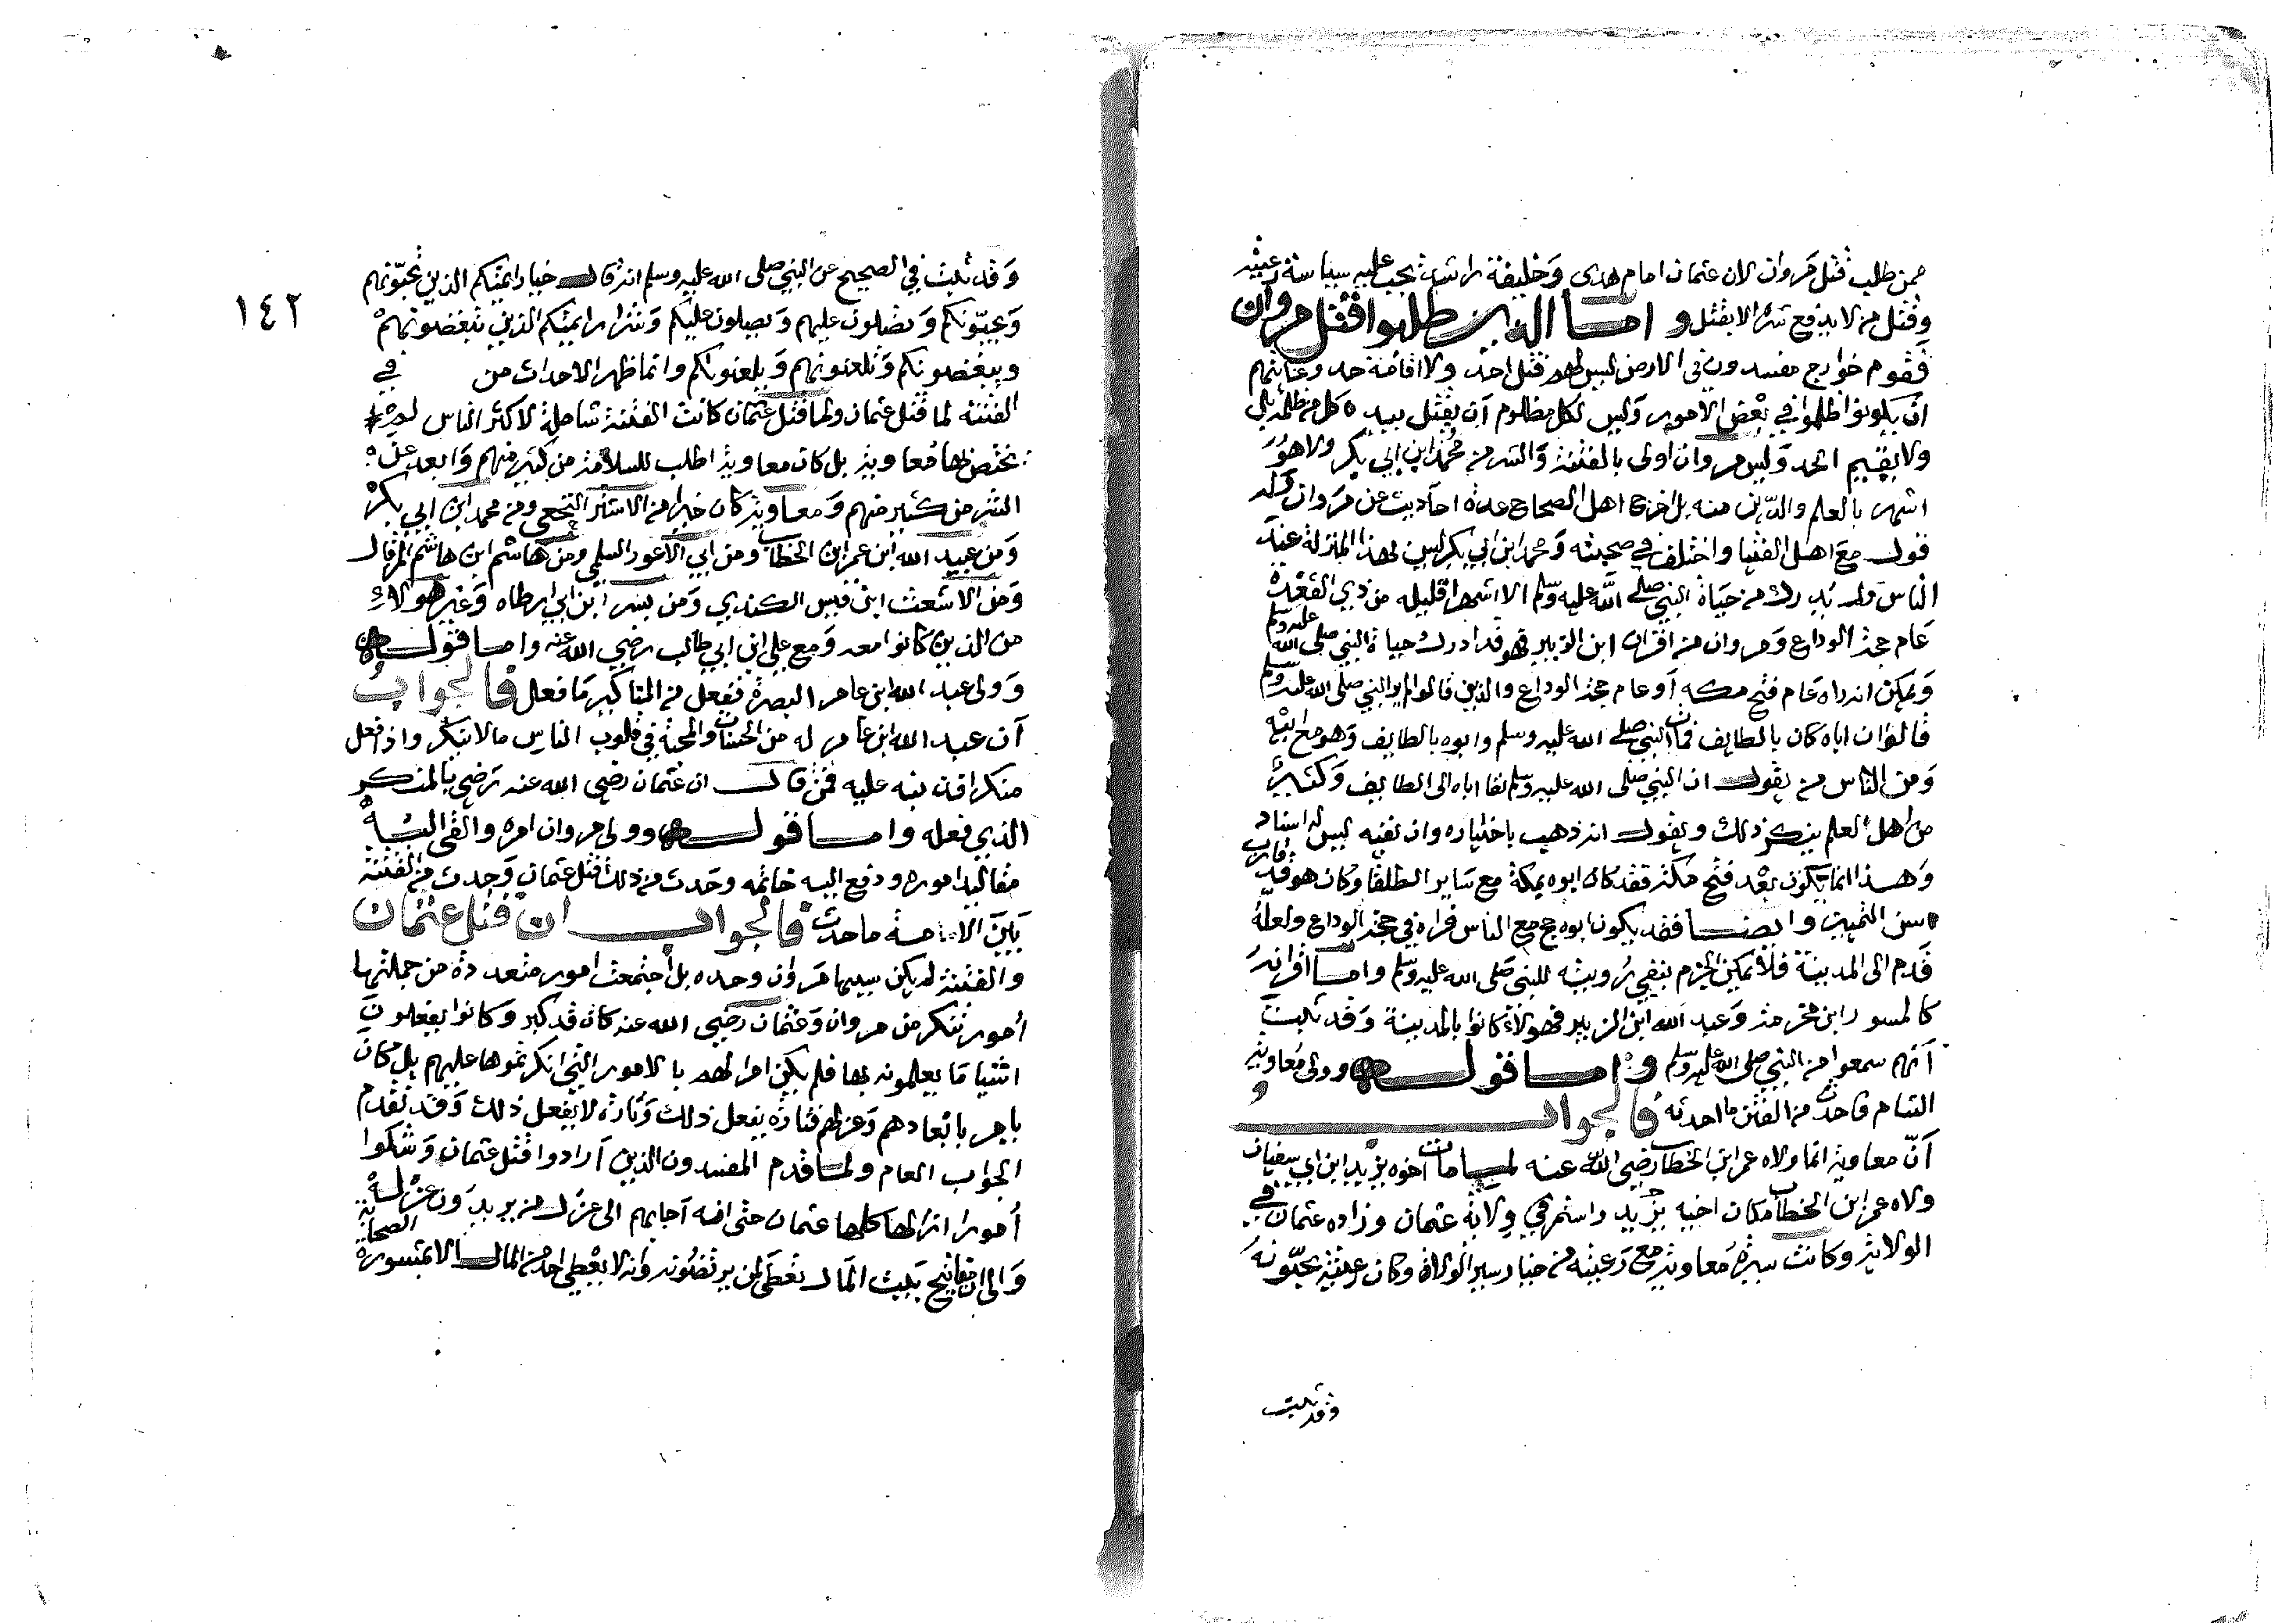 ممن طلب قتل مروان لان عثمان امام هدى وخليفة راشد يجب عليه سياسة رعيته
وقتل من لا يدفع شره الا بقتل واما الذين طلبوا قتل مروان
فقوم خوارج مفسدون في الارض ليس لهم قتل احد ولا اقامة حد وغايتهم
ان يكونوا ظلموا في بعض الامور وليس لكل مظلوم ان يقتل بيده كل من ظلمه بل
ولا يقيم الحد وليس مروان اولى بالفتنة والشر من محمد ابن ابي بكر ولا هو
اشهر بالعلم والدين منه بل اخرج اهل الصحاح عدة احاديث عن مروان وله
قول مع اهل الفتيا واختلف في صحبته ومحمد ابن ابي بكر ليس بهذا المنزلة عند
الناس ولم يدرك من حياة النبي صلى الله عليه وسلم الا اشهرا قليله من ذي القعدة
عام حجة الوداع ومروان من اقران ابن الزبير فهو قد ادرك حياة النبي صلى الله عليه وسلم
ويمكن انه راه عام فتح مكه او عام حجة الوداع والذين قالوا لم ير النبي صلى الله عليه وسلم
قالوا ان اباه كان بالطايف فمات النبي صلى الله عليه وسلم وابوه بالطايف وهو مع ابيه
ومن الناس من يقول ان النبي صلى الله عليه وسلم نفا اباه الى الطايف وكثير
من اهل العلم ينكر ذلك ويقول انه ذهب باختياره وان نفيه ليس له اسناد
وهذا انما يكون بعد فتح مكة فقد كان ابوه بمكة مع ساير الطلقا وكان هو قد قارب
سن التمييز وايضا فقد يكون ابوه حج مع الناس فراه في حجة الوداع ولعله
قدم الى المدينة فلا يمكن الجزم بنفي رويته للنبي صلى الله عليه وسلم واما اقرانه
كالمسور ابن مخرمة وعبد الله ابن الزبير فهولاء كانوا بالمدينة وقد ثبت
انهم سمعوا من النبي صلى الله عليه وسلم واما قوله وولى معاوية
الشام فاحدث من الفتن ما احدثه فالجواب
ان معاوية انما ولاه عمر ابن الخطاب رضي الله عنه لما مات اخوه يزيد ابن ابي سفيان
ولاه عمر ابن الخطاب مكان اخيه يزيد واستمر في ولاية عثمان وزاده عثمان في
الولاية وكانت سيرة معاوية مع رعيته من خيار سير الولاة وكان رعيته يحبونه
وقد ثبت
١٤٢
وقد ثبت في الصحيح عن النبي صلى الله عليه وسلم انه قال خيار ايمتكم الذين تحبونهم
ويحبونكم وتصلون عليهم ويصلون عليكم وشرار ايمتكم الذين تبغضونهم
ويبغضونكم وتلعنونهم ويلعنونكم وانما ظهر الاحداث من في
الفتنه لما قتل عثمان ولما قتل عثمان كانت الفتنة شاملة لاكثر الناس لم
يختص بها معاوية بل كان معاوية اطلب للسلامة من كثير منهم وابعد عن
الشر من كثير منهم ومعاوية كان خيرا من الاشتر النخعي ومن محمد ابن ابي بكر
ومن عبيد الله ابن عمر ابن الخطاب ومن ابي الاعور السلمي ومن هاشم ابن هاشم المرقال
ومن الاشعث ابن قيس الكندي ومن بسر ابن ابي ارطاه وغير هولاء
من الذين كانوا معه ومع علي ابن ابي طالب رضي الله عنه واما قوله
وولى عبد الله ابن عامر البصرة ففعل من المناكير ما فعل فالجواب
ان عبد الله ابن عامر له من الحسنات والمحبة في قلوب الناس مالا ينكر واذا فعل
منكرا فذنبه عليه فمن قال ان عثمان رضي الله عنه رضي بالمنكر
الذي فعله واما قوله وولى مروان امره والقى اليه
مقاليد اموره ودفع اليه خاتمه وحدث من ذلك قتل عثمان وحدث من الفتنة
بين الامة ما حدث فالجواب ان قتل عثمان
والفتنة لم يكن سببها مروان وحده بل اجتمعت امور متعددة من جملتها
امور تنكر من مروان وعثمان رضي الله عنه كان قد كبر وكانوا يفعلون
اشيا ما يعلمونه بها فلم يكن امرا لهم بالامور التي انكرتموها عليهم بل كان
يامر بابعادهم وعزلهم فتارة يفعل ذلك وتارة لا يفعل ذلك وقد تقدم
الجواب العام ولما قدم المفسدون الذين ارادوا قتل عثمان وشكوا
امورا ازالها كلها عثمان حتى انه اجابهم الى عزل من يريدون عزله
والى ان مفاتيح بيت المال تعطى لمن يرتضونه وانه لا يعطي احد من المال الا بمشورة الصحابة